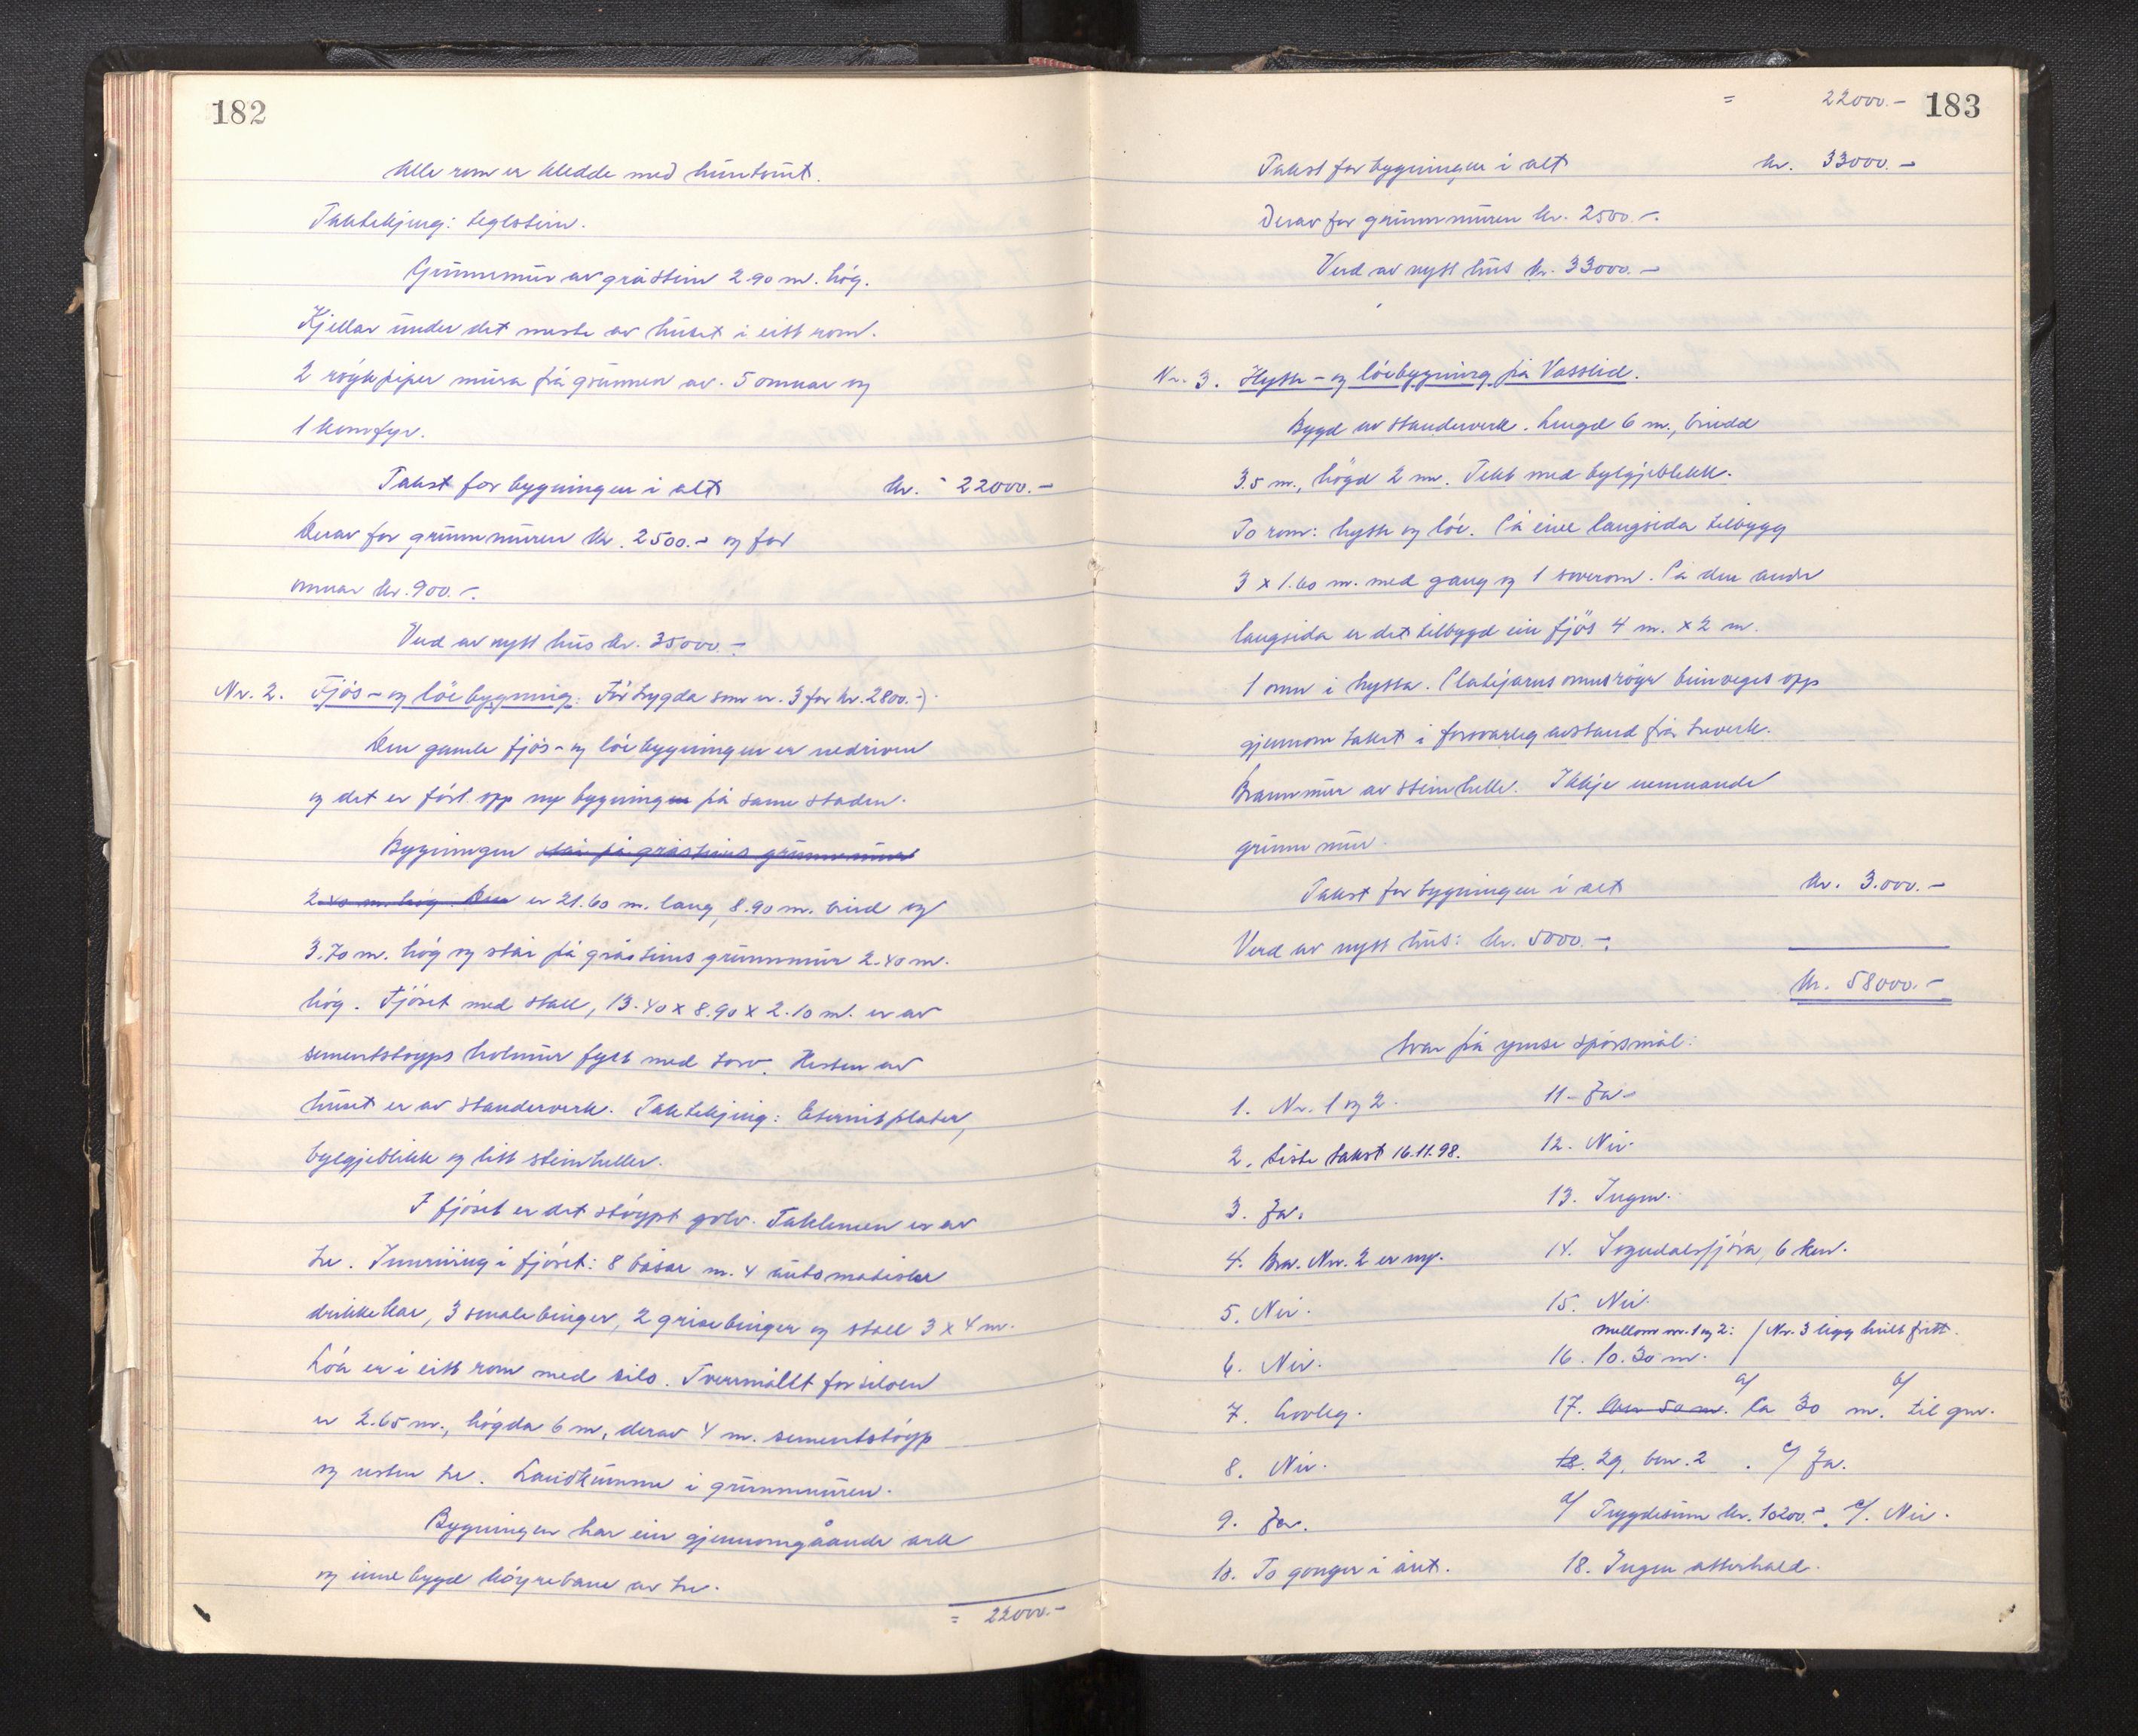 182
Alle rom er kledde med huntonit.
Taktekjing: teglstein.
Grunnmur av gråstein 2.90 m. høg.
Kjellar under det meste av huset i eitt rom.
2 røykpiper mura frå grunnen av. 5 omnar og
1 komfyr.
Takst for bygningen i alt kr. 22000.-
Derav for grunnmuren kr. 2500.- og for
omnar kr. 900.-.
Verd av nytt hus kr. 35000.-
Nr. 2. Fjøs- og løebygning: Før trygda som nr. 3 for kr. 2800.-)
Den gamle fjøs- og løebygningen er nedriven
og det er ført opp ny bygningen på same staden.
Bygningen står på gråsteins grunnmur
2.40 m. høg. Den er 21.60 m. lang, 8.90 m. breid og
3.70 m. høg og står på gråsteins grunnmur 2.40 m.
høg. Fjøset med stall, 13.40 x 8.90 x 2.10 m. er av
sementstøyps holmur fyllt med torv. Resten av
huset er av standerverk. Taktekjing: Eternitplater,
bylgjeblikk og litt steinheller.
I fjøset er det støypt golv. Taklemen er av
tre. Innreiing i fjøset: 8 båsar m. 4 automatiske
drikkekar, 3 smalebinger, 2 grisebinger og stall 3 x 4 m.
Løa er i eitt rom med silo. Tverrmållt for siloen
er 2.65 m., høgda 6 m, derav 4 m. sementstøyp
og resten tre. Landkumme i grunnmuren.
Bygningen har ein gjennomgåande ark
og innebygd høyrebane av tre.
= 22000.-
= 22000.- 183
Takst for bygningen i alt kr. 33000.-
Derav for grunnmuren kr. 2500.-.
Verd av nytt hus kr. 33000.-
Nr. 3. Hytte- og løebygning på Vasslid.
Bygd av standerverk. Lengd 6 m., breidd
3.5 m., høgd 2 m. Tekt med bylgjeblekk.
To rom: hytte og løe. På eine langsida tilbygg
3 x 1.60 m. med gang og 1 soverom. På den andre
langsida er det tilbygd ein fjøs 4 m. x 2 m.
1 omn i hytta. Platejarns omnsrøyr beinveges opp
gjennom taket i forsvarleg avstand frå treverk.
Brannmur av steinhelle. Ikkje nemnande
grunnmur.
Takst for bygningen i alt kr. 3.000.-
Verd av nytt hus: kr. 5000.-.
kr. 58000.-
Svar på ymse spørsmål:
1. Nr. 1 og 2.
2. Siste takst 16.11.98.
3. Ja.
4. Bra. Nr. 2 er ny.
5. Nei.
6. Nei.
7. Lovleg.
8. Nei.
9. Ja.
10. To gonger i året.
11. Ja.
12. Nei.
13. Ingen.
14. Sogndalsfjøra, 6 km.
15. Nei.
mellom nr. 1 og 2: / Nr. 3 ligg heilt fritt.
16. 10.30 m.
17. Om 50 m. a/ Ca 30 m. b/ til gnr.
18. 29, bnr. 2. c/ Ja.
d/ Trygdesum kr. 10200.-. e/. Nei.
18. Ingen atterhald.